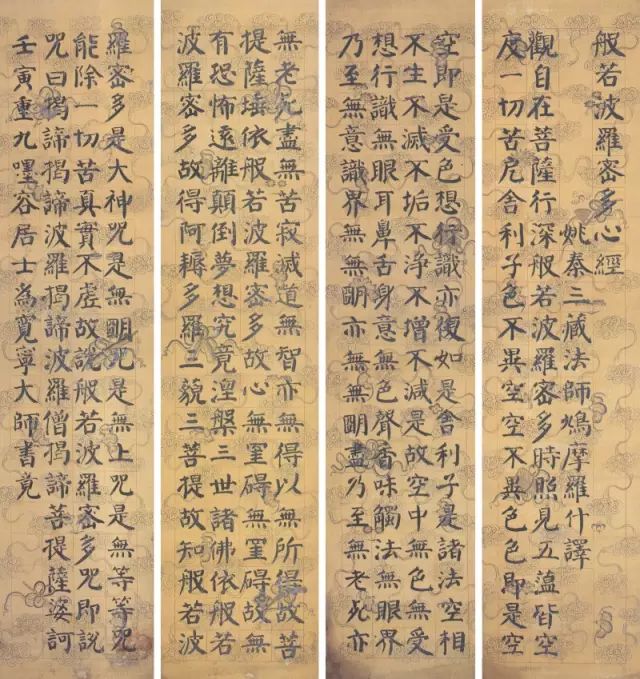 般若波羅密多心經
姚秦三藏法師鳩摩羅什譯
觀自在菩薩行深般若波羅密多時照見五蘊皆空
度一切苦厄舍利子色不異空空不異色色即是空
空即是受色想行識亦復如是舍利子是諸法空相
不生不滅不垢不净不增不減是故空中無色無受
想行識無眼耳鼻舌身意無色聲香味觸法無眼界
乃至無意識界無無明亦無無明盡乃至無老死亦
無老死盡無苦寂滅道無智亦無得以無所得故菩
提薩埵依般若波羅密多故心無罣礙無罣礙故無
有恐怖遠離顛倒夢想究竟涅槃三世諸佛依般若
波羅密多故得阿耨多羅三貌三菩提故知般若波
羅密多是大神咒是無明咒是無上咒是無等等咒
能除一切苦真實不虛故說般若波羅密多咒即說
咒曰揭諦揭諦波羅揭諦波羅僧揭諦菩提薩婆訶
壬寅重九嘿谷居士為寬寧大師書竟